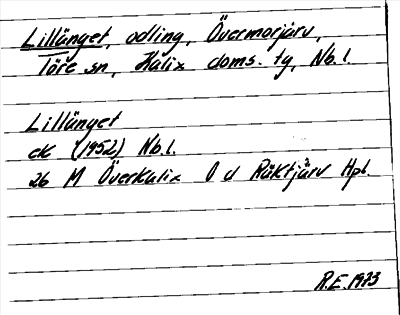 Lillänget, odling, Övermorjärv,
Töre sn, Kalix doms. tg, Nb.l.
Lillänget
ek (1952) Nb.l.
26 M Överkalix O d Räktjärv Hpl.
R.E. 1973